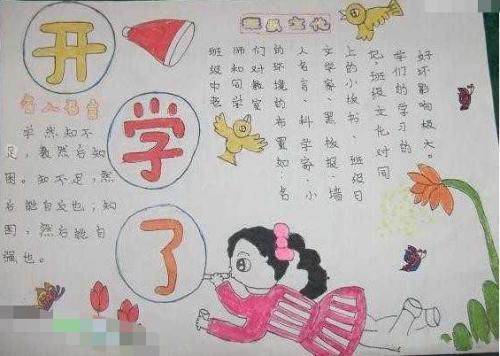 开
学
了
名人名言
学然知不
足，教然后知
困。知不足，然
后能自反也；知
困，然后能自
强也。
班级文化
班级中老
师和同学
们对教室
的环境的布置如：名
人名言、科学家、小
文学家、黑板报、墙
上的小板书、班级日
记，班级文化对同
学们的学习的
好坏影响极大。